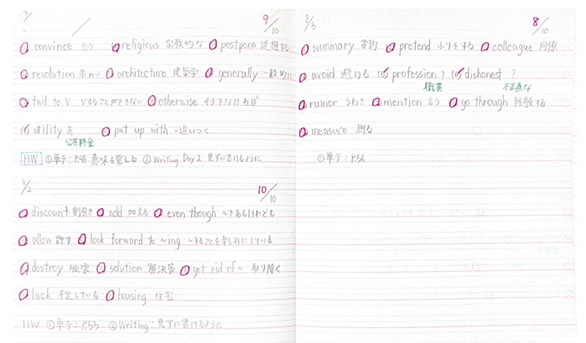 9/10
convince religious 宗教的な postpone 延期する
revolution architecture 建築学 generally 一般的に
fail to V Vすることができない otherwise そうでなければ
utility 公共料金 put up with
HW ①単テ: 意味を覚える ②Writing Day 2 見ずに書けるように
1/2 10/10
discount 割引き add 加える even though ~であるけれども
allow 許す look forward to ~ing ~することを楽しみにしている
destroy 破壊 solution 解決策 get rid of~ 取り除く
lack 不足している housing 住宅
HW ①単テ: P.53 ②Writing: 見ずに書けるように
8/10
summary 要約 pretend ふりをする colleague 同僚
avoid 避ける profession ? 職業 dishonest ? 不正直な
rumor うわさ mention 言う go through 経験する
measure 測る
①単テ: P.56